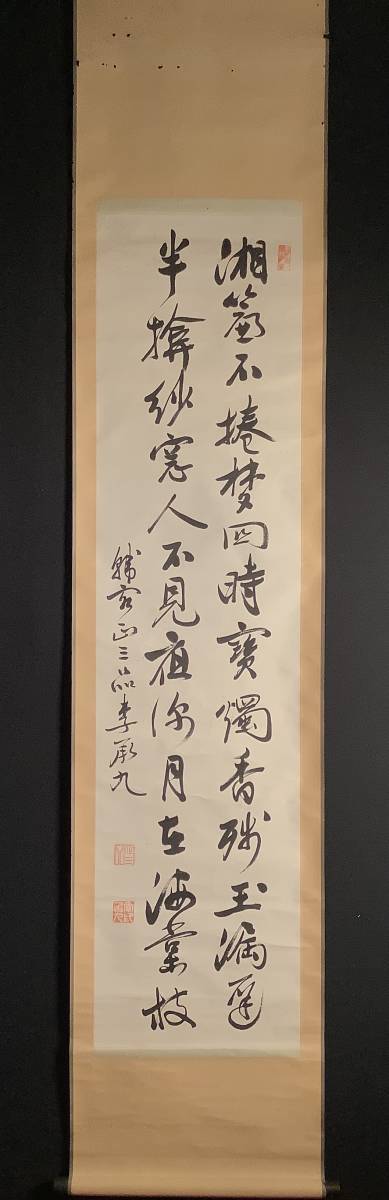 湘簾不捲梦回時寶燭香殘玉漏遲
半掩紗窓人不見夜深月在海棠枝
韓客正三品李承九